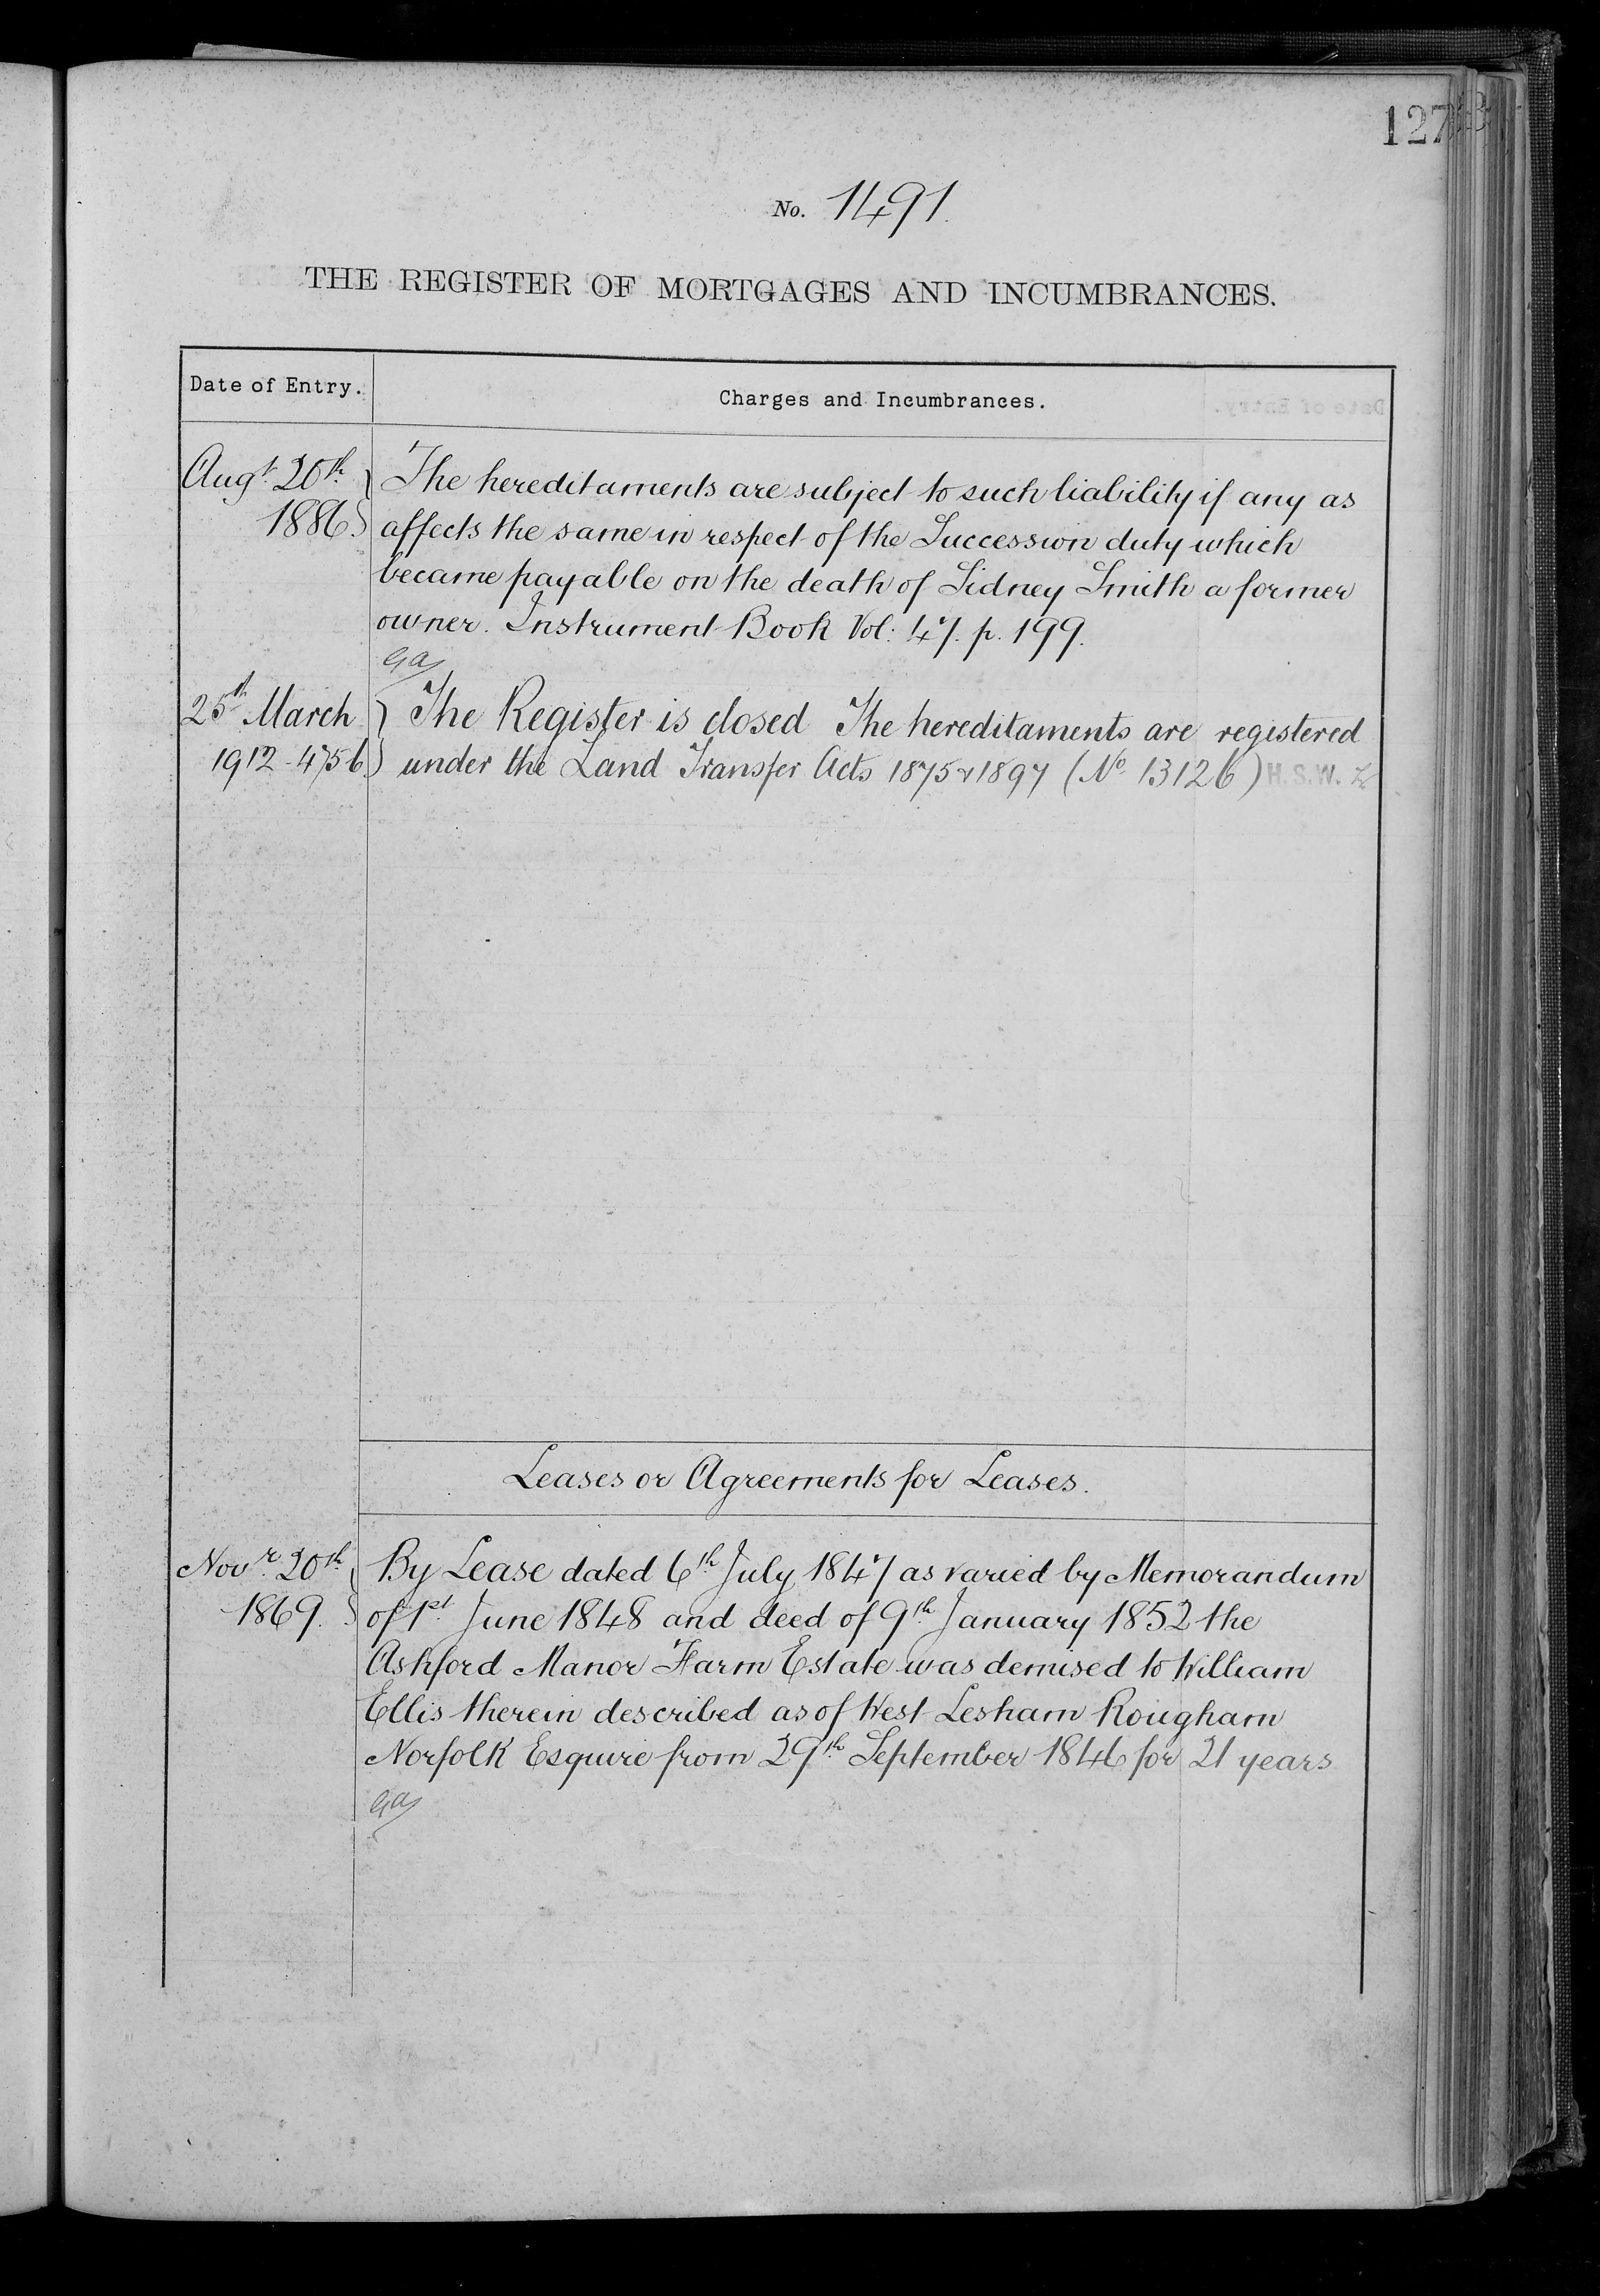 127
No. 1491.
THE REGISTER OF MORTGAGES AND INCUMBRANCES.
Date of Entry.
Charges and Incumbrances.
Augt. 20th
1886.
The hereditaments are subject to such liability if any as
affects the same in respect of the Succession duty which
became payable on the death of Sidney Smith a former
owner. Instrument Book Vol: 47. p. 199.
25th March
1912 - 4756
The Register is closed The hereditaments are registered
under the Land Transfer Acts 1875 & 1897 (No 13126) H.S.W.
Leases or Agreements for Leases.
Novr. 20th
1869.
By Lease dated 6th July 1847 as varied by Memorandum
of 1st June 1848 and deed of 9th January 1852 the
Ashford Manor Farm Estate was demised to William
Ellis therein described as of West Lesham Rougham
Norfolk Esquire from 29th September 1846 for 21 years